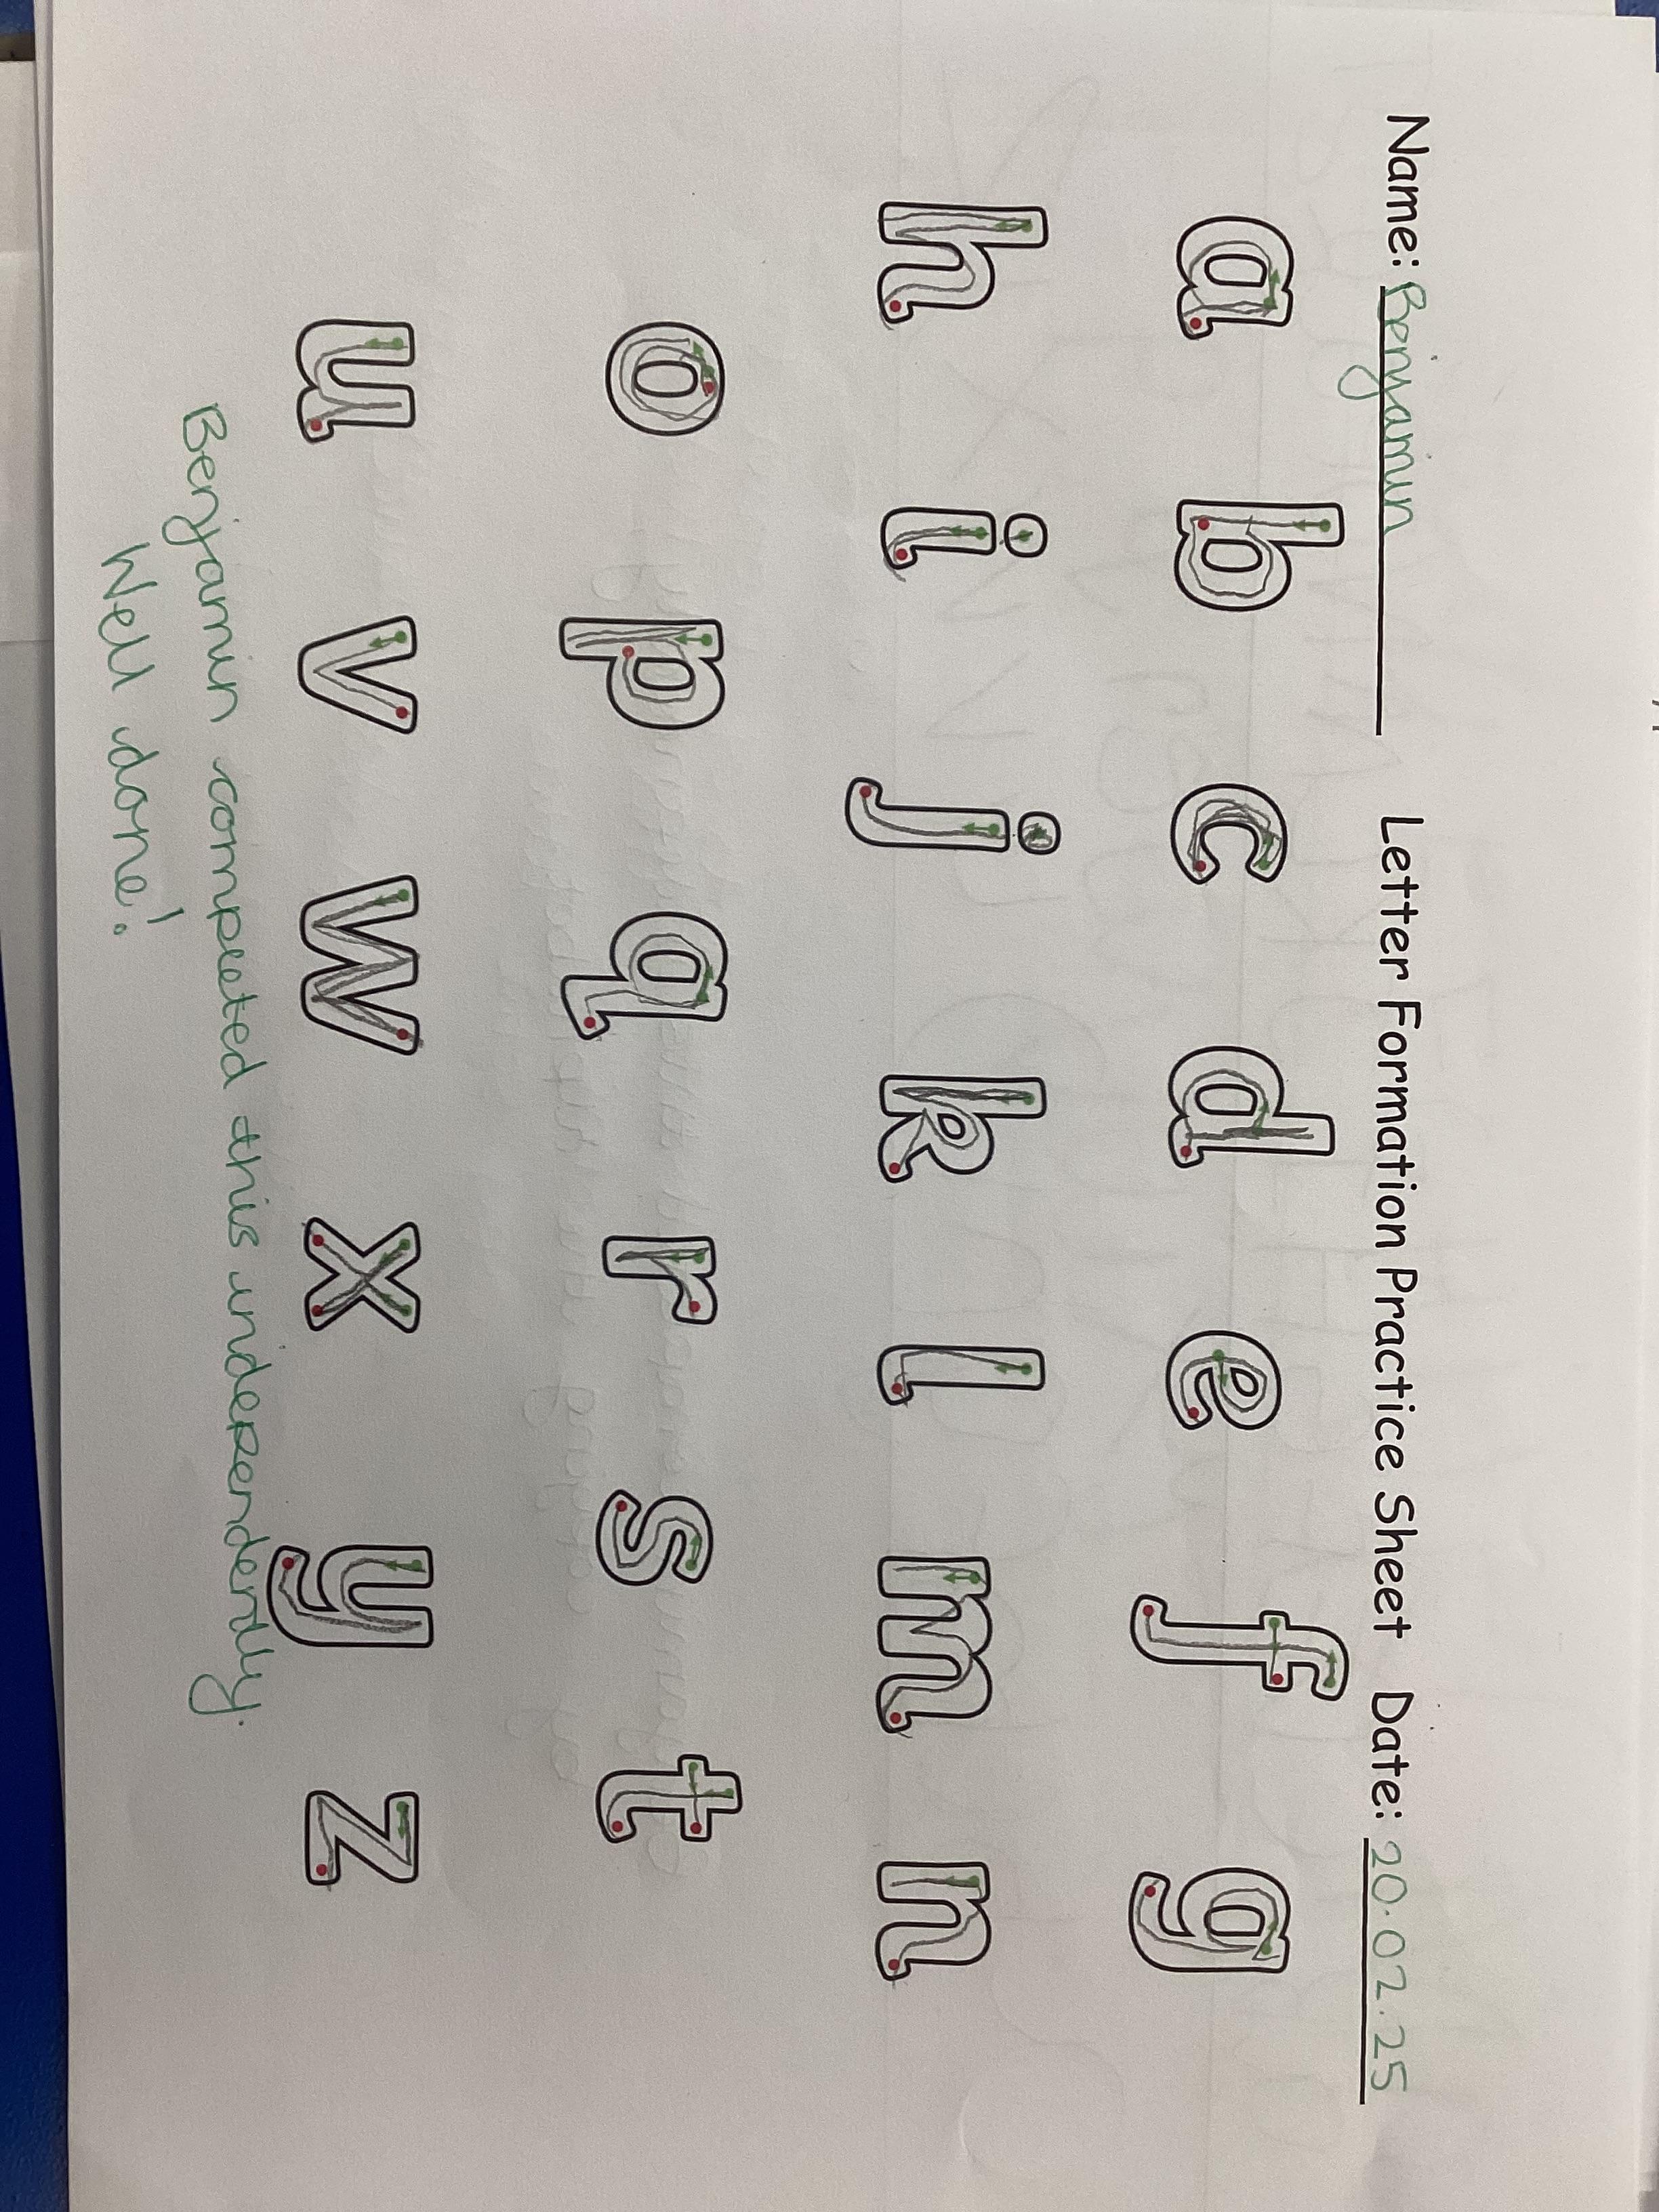 Name: Benjamin Letter Formation Practice Sheet Date: 20.02.25
a b c d e f g
h i j k l m n
o p q r s t
u v w x y z
Benjamin completed this independently.
Well done!